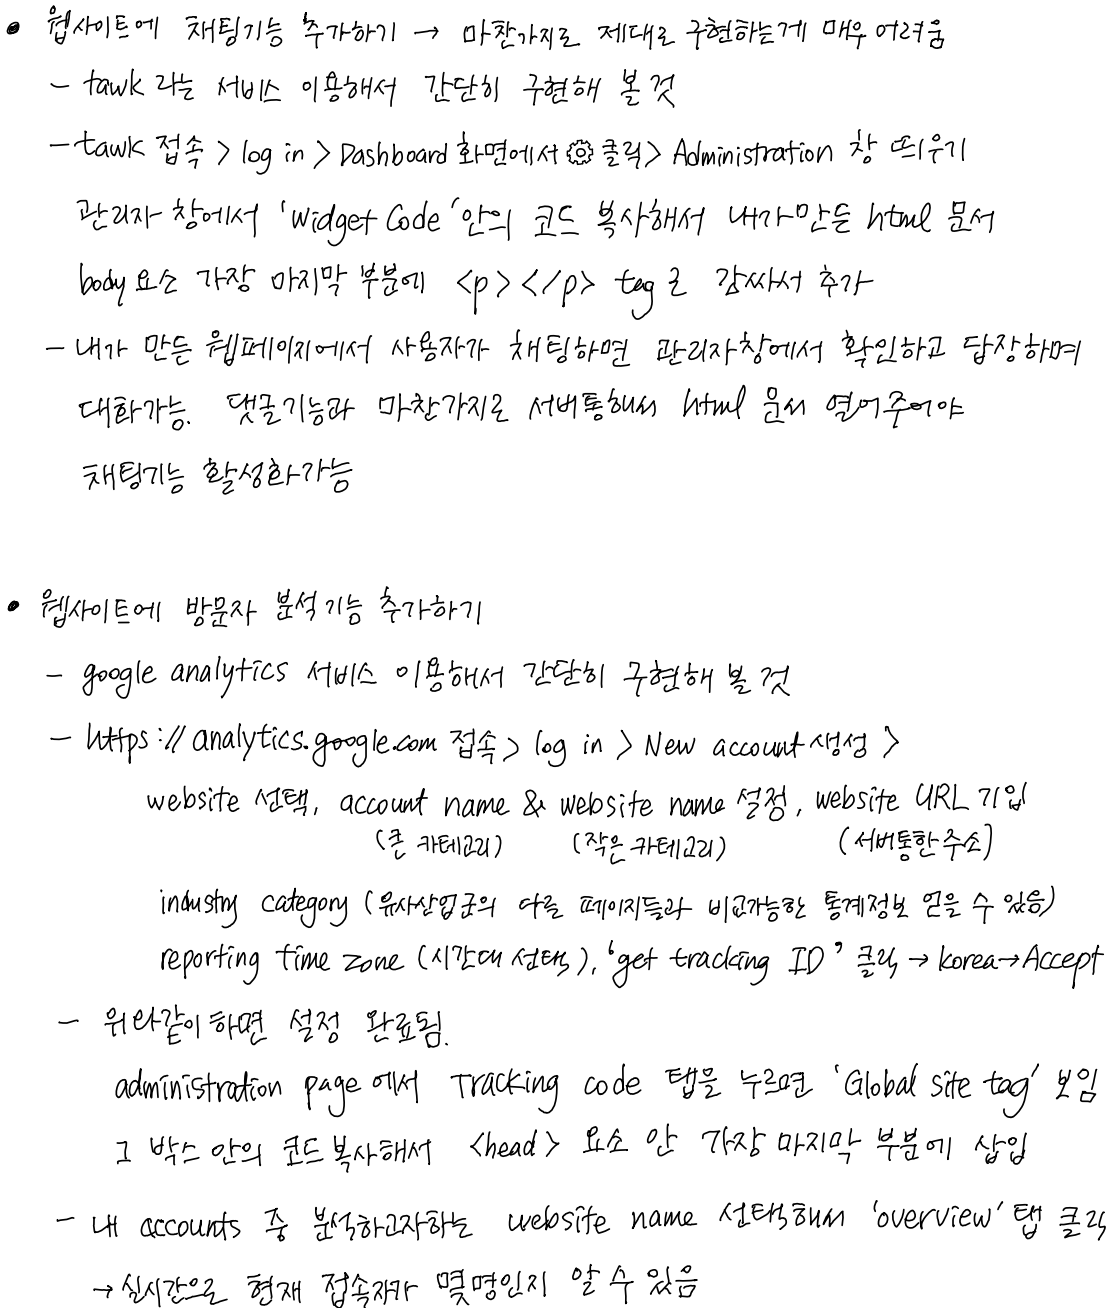 • 웹사이트에 채팅기능 추가하기 → 마찬가지로 제대로 구현하는게 매우 어려움
– tawk 라는 서비스 이용해서 간단히 구현해 볼 것
– tawk 접속 > log in > Dashboard 화면에서 ⚙ 클릭 > Administration 창 띄우기
관리자 창에서 'Widget Code' 안의 코드 복사해서 내가만든 html 문서
body 요소 가장 마지막 부분에 <p></p> tag로 감싸서 추가
– 내가 만든 웹페이지에서 사용자가 채팅하면 관리자창에서 확인하고 답장하며
대화가능. 댓글기능과 마찬가지로 서버통해서 html 문서 열어주어야
채팅기능 활성화가능
• 웹사이트에 방문자 분석기능 추가하기
– google analytics 서비스 이용해서 간단히 구현해 볼 것
– https://analytics.google.com 접속 > log in > New account 생성 >
website 선택, account name & website name 설정, website URL 기입
(큰 카테고리) (작은 카테고리) (서버통한 주소)
industry category (유사산업군의 다를 페이지들과 비교가능한 통계정보 얻을 수 있음)
reporting time zone (시간대 선택), 'get tracking ID' 클릭 → korea → Accept
– 위와같이 하면 설정 완료됨.
administration page에서 Tracking code 탭을 누르면 'Global site tag' 보임
그 박스 안의 코드 복사해서 <head> 요소 안 가장 마지막 부분에 삽입
– 내 accounts 중 분석하고자하는 website name 선택해서 'overview' 탭 클릭
→ 실시간으로 현재 접속자가 몇명인지 알 수 있음